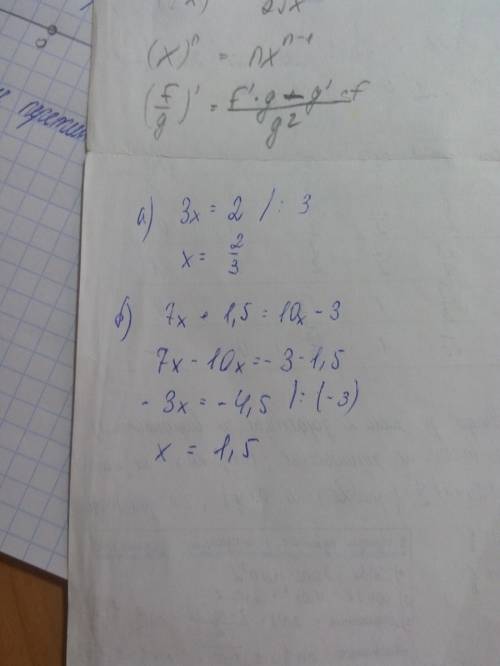 (x)ⁿ = nxⁿ⁻¹
(f/g)' = (f'·g - g'·f)/g²
а) 3x = 2 /: 3
x = 2/3
б) 7x + 1,5 = 10x - 3
7x - 10x = - 3 - 1,5
- 3x = - 4,5 /: (-3)
x = 1,5